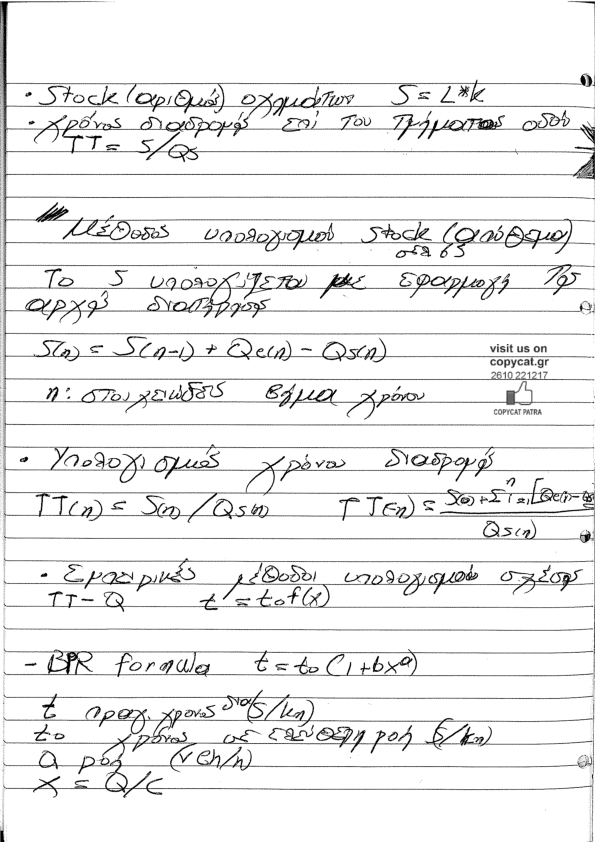 · Stock (αριθμός) οχημάτων S = L*k
· χρόνος διαδρομής επί του τμήματος οδού
TT = S/Qs
Μέθοδος υπολογισμού stock (απόθεμα)
σελ 65
Το S υπολογίζεται με εφαρμογή της
αρχής διατήρησης
S(n) = S(n-1) + Qe(n) - Qs(n)
visit us on
copycat.gr
2610 221217
COPYCAT PATRA
n: στοιχειώδες βήμα χρόνου
· Υπολογισμός χρόνου διαδρομής
TT(n) = S(n) / Qs(n) TT(n) = S(0) + Σ i=1 n [Qe(n-Qs
Qs(n)
· Εμπειρικές μέθοδοι υπολογισμού σχέσης
TT-Q t = to f(x)
- BPR formula t = to (1+bx^a)
t πραγ. χρόνος δια (s/km)
to χρόνος σε ελεύθερη ροή (s/km)
Q ροή (veh/h)
x = Q/C